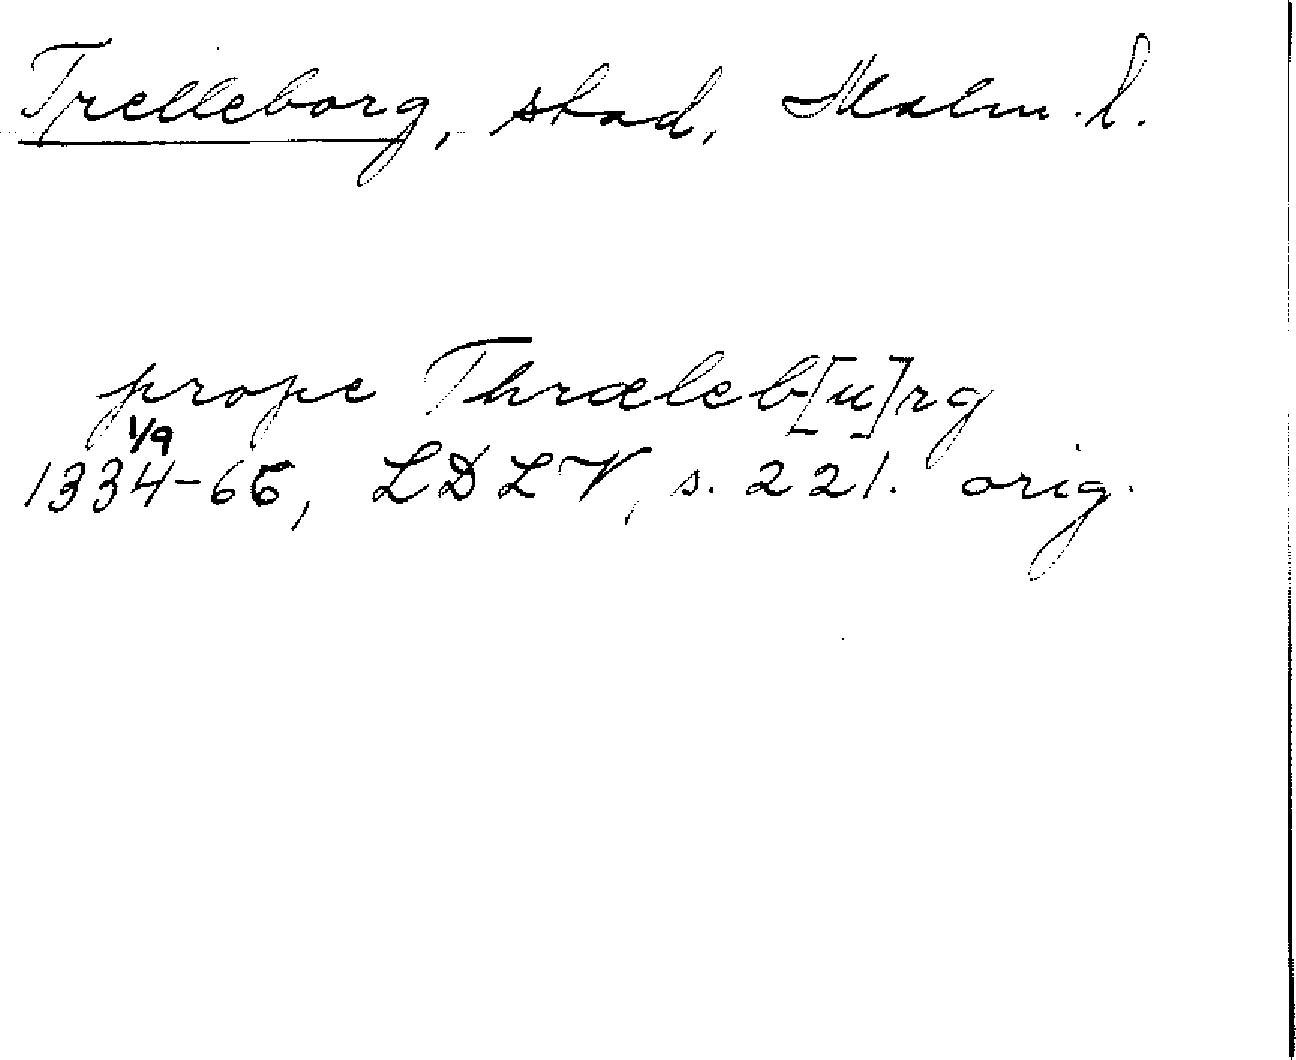 Trelleborg, stad, Malm. l.
prope Thræleb[u]rg
1/9
1334-66, LDLV, s. 221. orig.